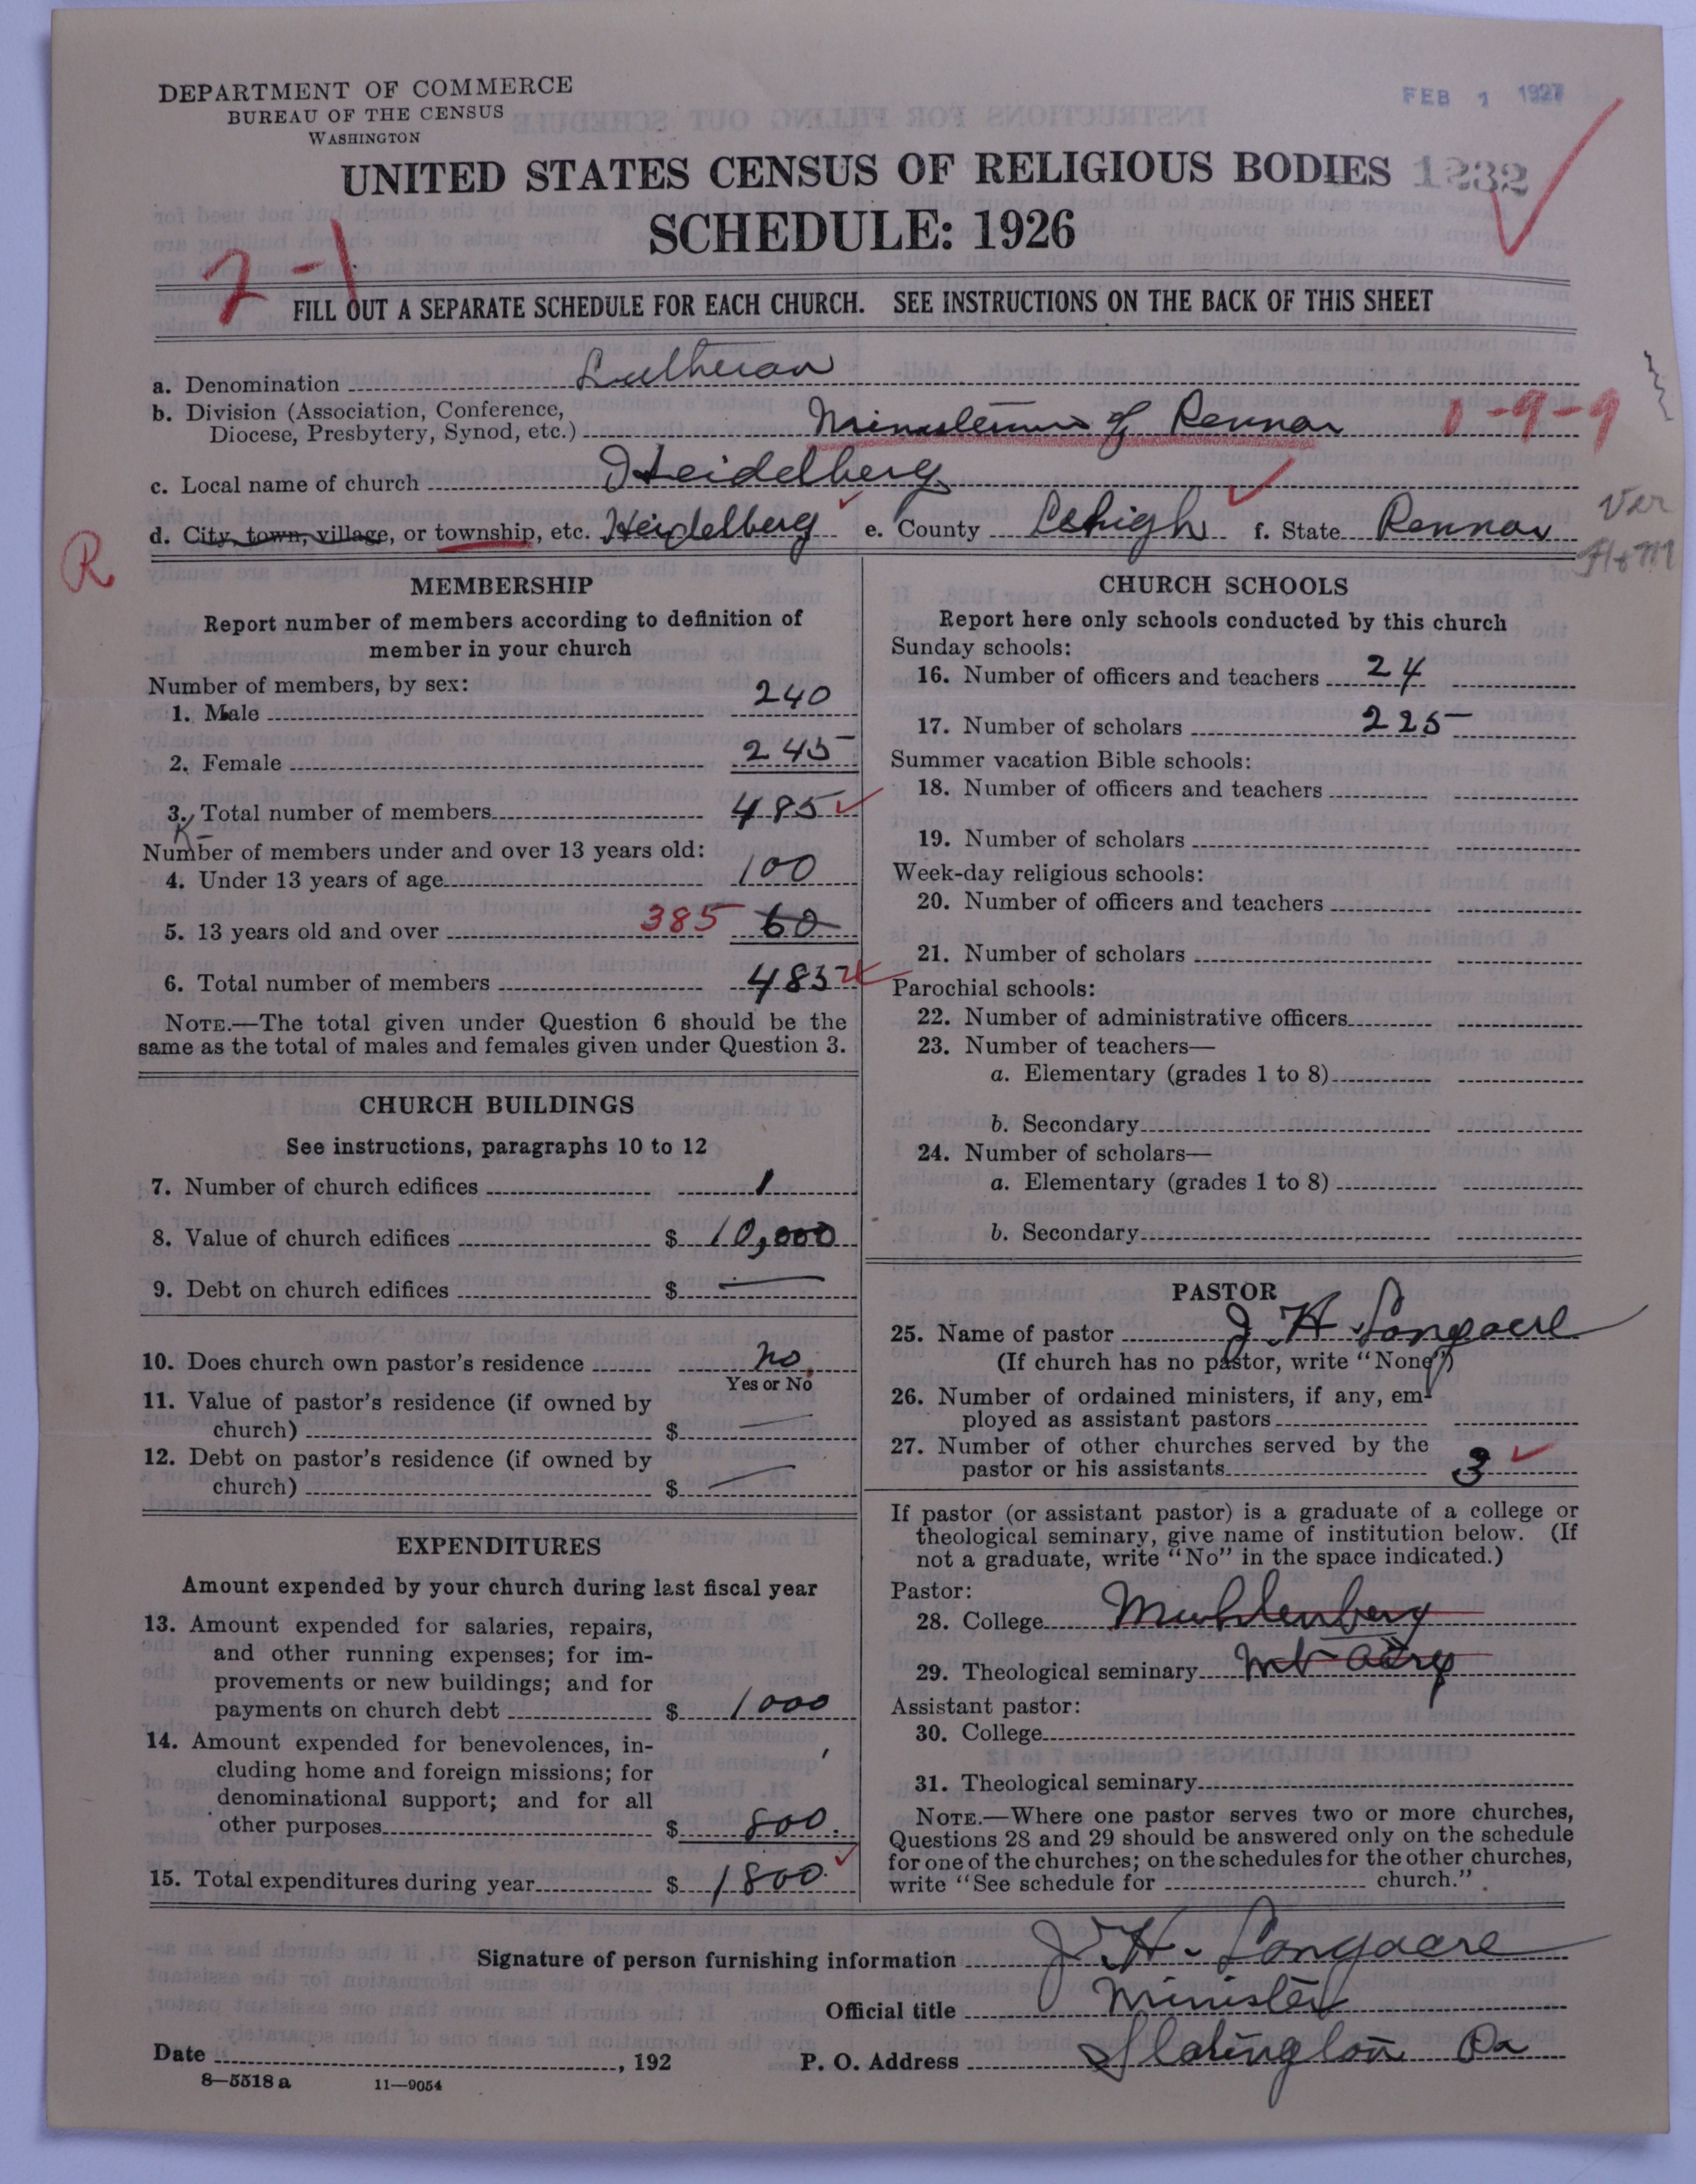 DEPARTMENT OF COMMERCE
BUREAU OF THE CENSUS
WASHINGTON
FEB 1 1927
UNITED STATES CENSUS OF RELIGIOUS BODIES 1232
SCHEDULE: 1926
2-1
FILL OUT A SEPARATE SCHEDULE FOR EACH CHURCH. SEE INSTRUCTIONS ON THE BACK OF THIS SHEET
a. Denomination Lutheran
b. Division (Association, Conference,
Diocese, Presbytery, Synod, etc.) Ministerium of Penna 1-9-9
c. Local name of church Heidelberg
d. City, town, village, or township, etc. Heidelberg e. County Lehigh f. State Penna
Ver
R
MEMBERSHIP
Report number of members according to definition of
member in your church
Number of members, by sex:
1. Male 240
2. Female 245
3. Total number of members 485
Number of members under and over 13 years old:
4. Under 13 years of age 100
5. 13 years old and over 385 60
6. Total number of members 485
NOTE.—The total given under Question 6 should be the
same as the total of males and females given under Question 3.
CHURCH BUILDINGS
See instructions, paragraphs 10 to 12
7. Number of church edifices 1
8. Value of church edifices $ 10,000
9. Debt on church edifices $ —
10. Does church own pastor's residence no
Yes or No
11. Value of pastor's residence (if owned by
church) $ —
12. Debt on pastor's residence (if owned by
church) $ —
EXPENDITURES
Amount expended by your church during last fiscal year
13. Amount expended for salaries, repairs,
and other running expenses; for im-
provements or new buildings; and for
payments on church debt $ 1000
14. Amount expended for benevolences, in-
cluding home and foreign missions; for
denominational support; and for all
other purposes $ 800
15. Total expenditures during year $ 1800
CHURCH SCHOOLS
Report here only schools conducted by this church
Sunday schools:
16. Number of officers and teachers 24
17. Number of scholars 225
Summer vacation Bible schools:
18. Number of officers and teachers
19. Number of scholars
Week-day religious schools:
20. Number of officers and teachers
21. Number of scholars
Parochial schools:
22. Number of administrative officers
23. Number of teachers—
a. Elementary (grades 1 to 8)
b. Secondary
24. Number of scholars—
a. Elementary (grades 1 to 8)
b. Secondary
PASTOR
25. Name of pastor J. H. Longacre
(If church has no pastor, write "None")
26. Number of ordained ministers, if any, em-
ployed as assistant pastors
27. Number of other churches served by the
pastor or his assistants 3
If pastor (or assistant pastor) is a graduate of a college or
theological seminary, give name of institution below. (If
not a graduate, write "No" in the space indicated.)
Pastor:
28. College Muhlenberg
29. Theological seminary Mt Airy
Assistant pastor:
30. College
31. Theological seminary
NOTE.—Where one pastor serves two or more churches,
Questions 28 and 29 should be answered only on the schedule
for one of the churches; on the schedules for the other churches,
write "See schedule for church."
Signature of person furnishing information J. H. Longacre
Official title Minister
Date , 192 P. O. Address Slatington Pa
8—5518 a 11—9054